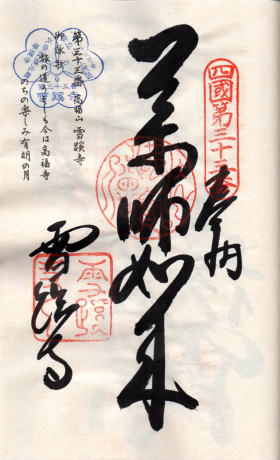 四國第三十三番
奉納
薬師如来
雪蹊寺
第三十三番 高福山 雪蹊寺
御詠歌
旅の道うゑしも今は高福寺
のちの楽しみ有明の月